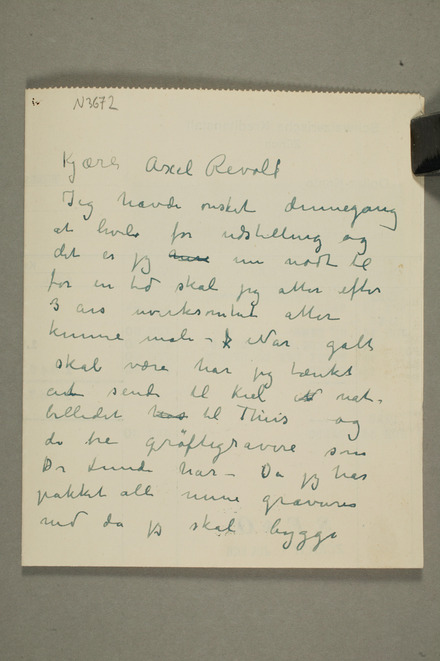 N3672
Kjære Axel Revold
Jeg havde ønsket dennegang
at hvile for udstilling og
det er jeg nu nødt til
for en tid skal jeg atter efter
3 års uvirksomhet atter
kunne male – Når galt
skal være har jeg tænkt
at sende til Kiel nat-
billedet til Thiis og
de tre grøftegravere som
Dr Lunde har – Da jeg har
pakket alle mine gravures
ned da jeg skal bygge